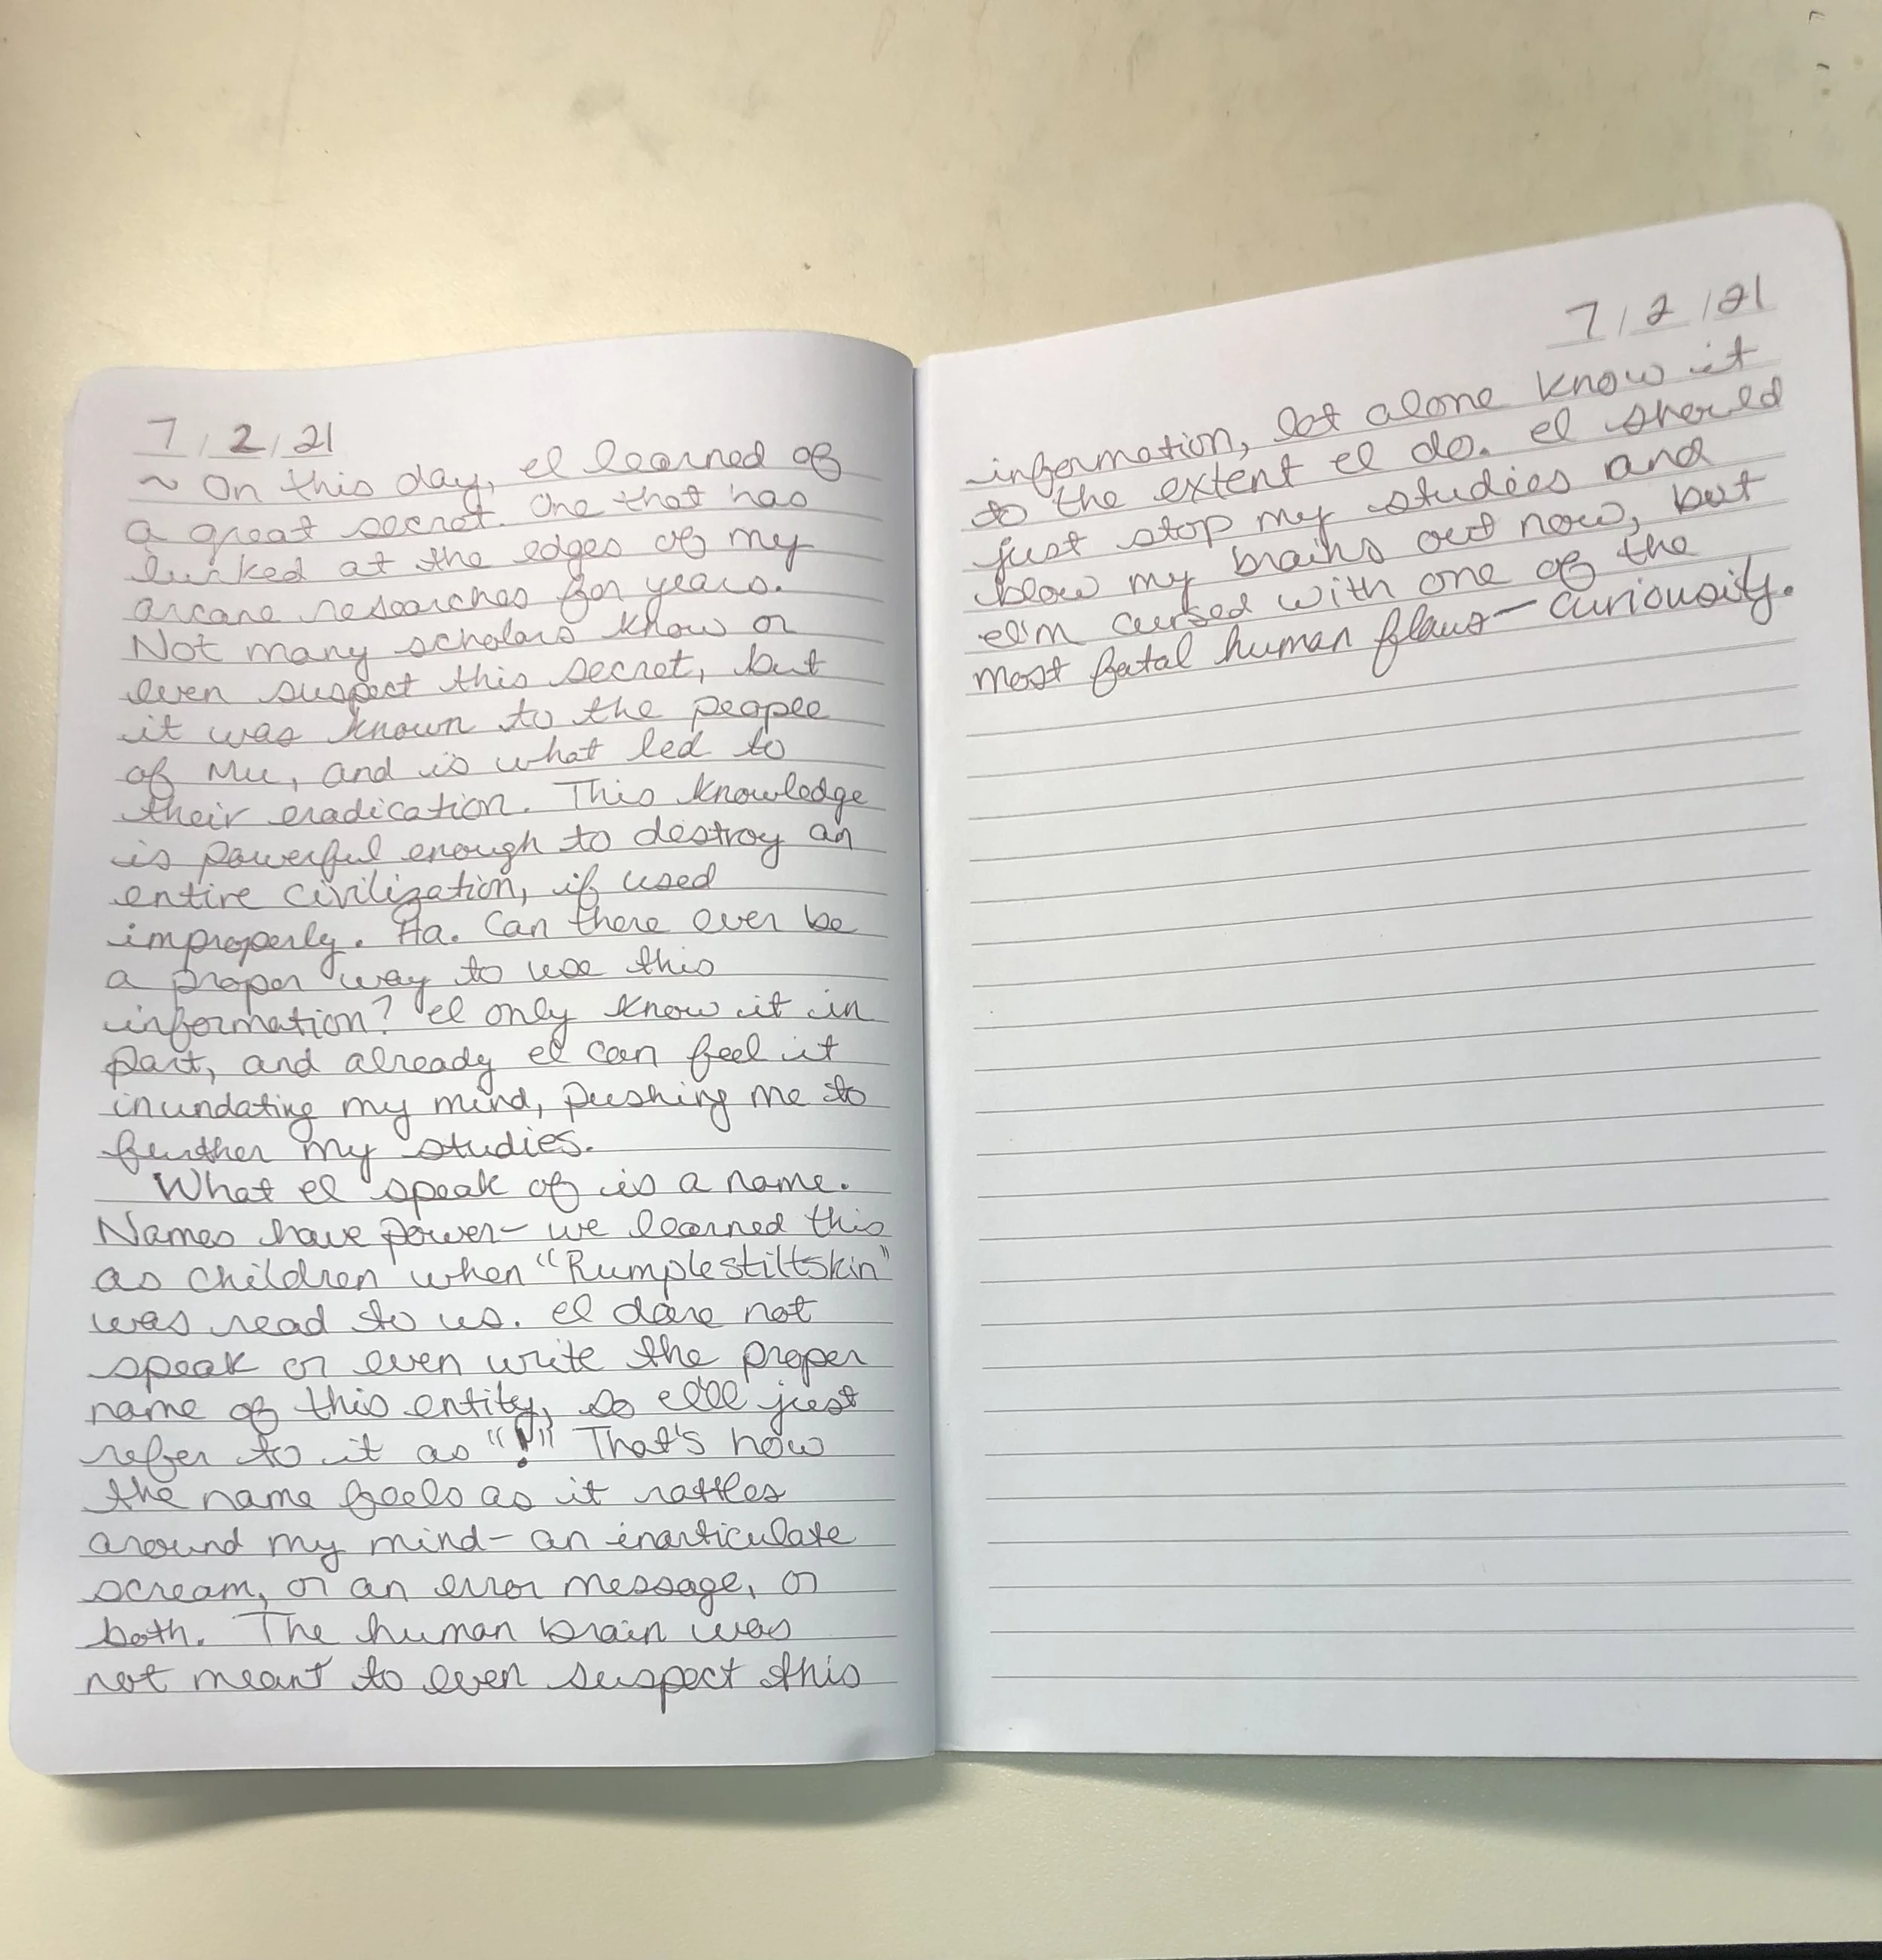 7/2/21
~ On this day, I learned of
a great secret. One that has
lurked at the edges of my
arcane researches for years.
Not many scholars know or
even suspect this secret, but
it was known to the people
of Mu, and is what led to
their eradication. This knowledge
is powerful enough to destroy an
entire civilization, if used
improperly. Ha. Can there ever be
a proper way to use this
information? I only know it in
part, and already I can feel it
inundating my mind, pushing me to
further my studies.
What I speak of is a name.
Names have power- we learned this
as children when "Rumplestiltskin"
was read to us. I dare not
speak or even write the proper
name of this entity, so I'll just
refer to it as "!" That's how
the name feels as it rattles
around my mind- an inarticulate
scream, or an error message, or
both. The human brain was
not meant to even suspect this
7/2/21
information, let alone know it
to the extent I do. I should
just stop my studies and
blow my brains out now, but
I'm cursed with one of the
most fatal human flaws- curiousity.